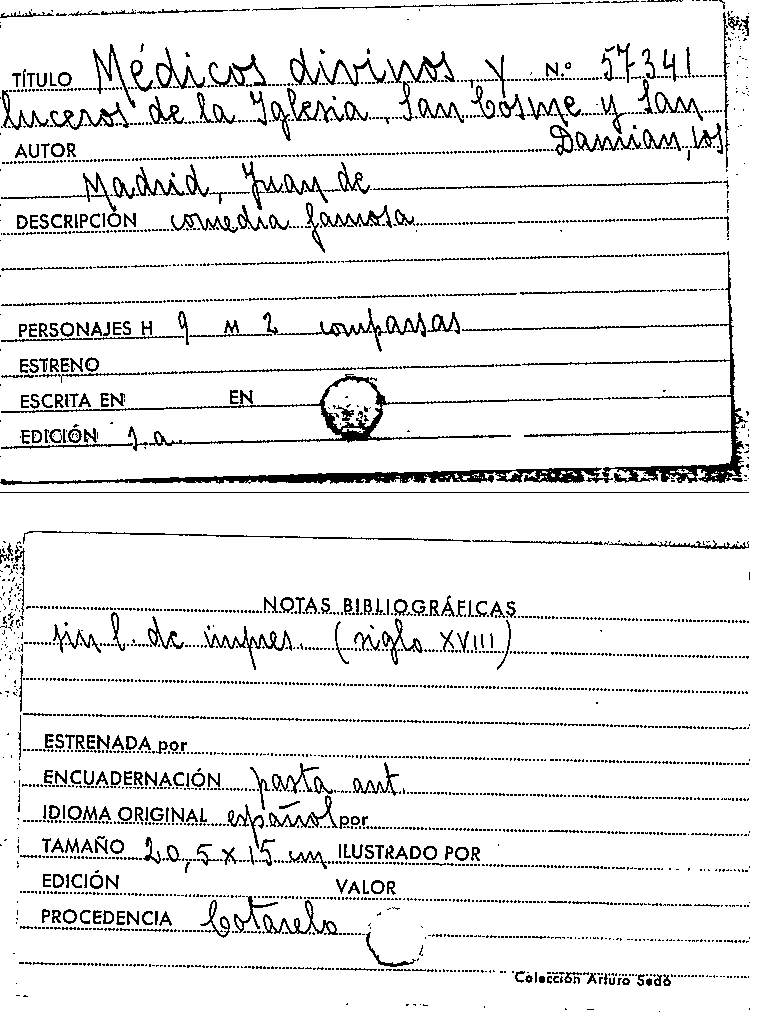 TÍTULO Médicos divinos, y N.º 57341
luceros de la Iglesia, San Cosme y San
AUTOR Damian, los
Madrid, Juan de
DESCRIPCIÓN comedia famosa
PERSONAJES H 9 M 2 comparsas
ESTRENO
ESCRITA EN EN
EDICIÓN 1.a
NOTAS BIBLIOGRÁFICAS
sin l. de impres. (siglo XVIII)
ESTRENADA por
ENCUADERNACIÓN pasta ant.
IDIOMA ORIGINAL español por
TAMAÑO 20,5 x 15 cm ILUSTRADO POR
EDICIÓN VALOR
PROCEDENCIA Cotarelo
Colección Arturo Sedó